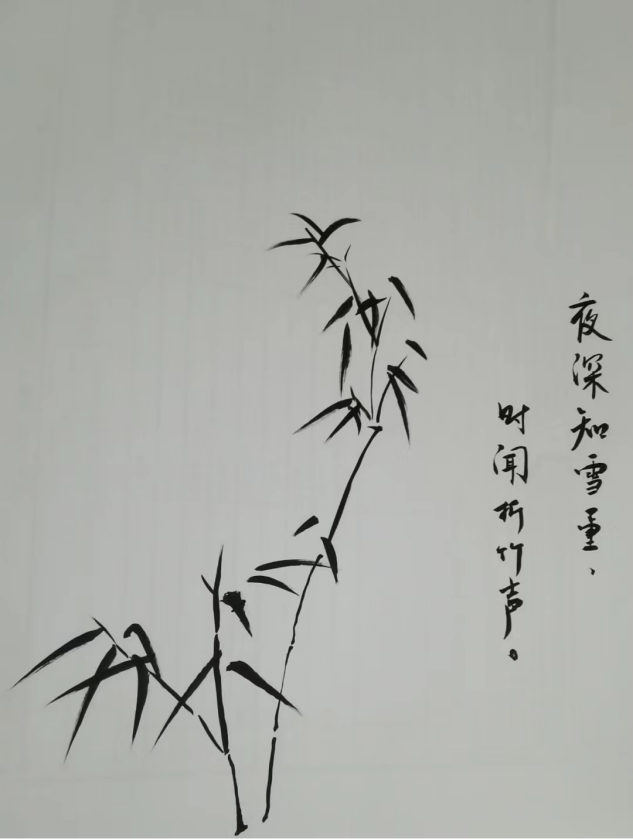 夜深知雪重、
时闻折竹声。